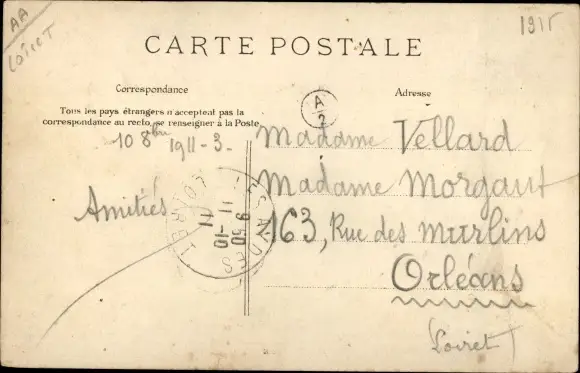 AA
Loiret
1915
CARTE POSTALE
Correspondance
Adresse
Tous les pays étrangers n'acceptent pas la
correspondance au recto, se renseigner à la Poste
A
2
10 8bre 1911-3-
Amitiés
9 50
11 -10
11
LOIRET
Madame Vellard
Madame Morgaut
163, Rue des Murlins
Orléans
(Loiret)